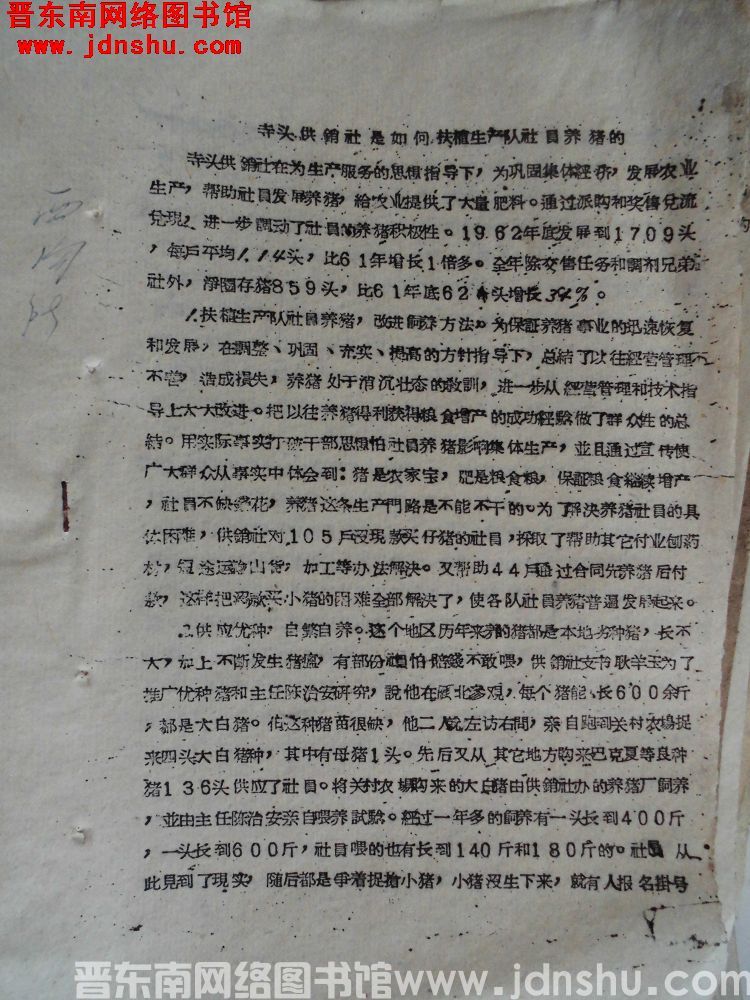 晋东南网络图书馆
www.jdnshu.com
寺头供銷社是如何扶植生产队社員养猪的
寺头供銷社在为生产服务的思想指导下,为巩固集体經济,发展农业
生产,帮助社員发展养猪,給农业提供了大量肥料。通过派购和奖售兑流
兑现,进一步調动了社員的养猪积极性。1962年底发展到1709头
,每戶平均1.14头,比61年增长1倍多。全年除交售任务和調剂兄弟
社外,淨圈存猪859头,比61年底62 头增长34%。
1.扶植生产队社員养猪,改进飼养方法。为保証养猪事业的迅速恢复
和发展,在調整、巩固、充实、提高的方針指导下,总結了以往經营管理
不善,造成損失,养猪处于消沉壮态的教訓,进一步从經营管理和技术指
导上大大改进。把以往养猪得利获得粮食增产的成功經驗做了群众性的总
結。用实际事实打破干部思想怕社員养猪影响集体生产,並且通过宣传使
广大群众从事实中体会到:猪是农家宝,肥是粮食粮,保証粮食継续增产
,社員不缺錢花,养猪这条生产門路是不能不干的。为了解决养猪社員的具
体困难,供銷社对105戶沒現款买仔猪的社員,採取了帮助其它付业刨药
材,短途运輸山貨,加工等办法解决。又帮助44戶通过合同先养猪后付
款,这样把沒款买小猪的困难全部解决了,使各队社員养猪普遍发展起来。
2.供应优种,自繁自养。这个地区历年来养的猪都是本地劣种猪,长不
大,加上不断发生猪瘟,有部份社員怕賠錢不敢喂,供銷社支书耿羊玉为了
推广优种猪和主任陈治安研究,說他在 北参观,每个猪能长600余斤
,都是大白猪。但这种猪苗很缺,他二人就左訪右問,亲自跑到关村农場捉
来四头大白猪种,其中有母猪1头。先后又从其它地方购来巴克夏等良种
猪136头供应了社員。将关村农場购来的大白猪由供銷社办的养猪厂飼养
,並由主任陈治安亲自喂养試驗。經过一年多的飼养有一头长到400斤
,一头长到600斤,社員喂的也有长到140斤和180斤的。社員从
此見到了現实,随后都是爭着捉搶小猪,小猪沒生下来,就有人报名掛号
晋东南网络图书馆www.jdnshu.com